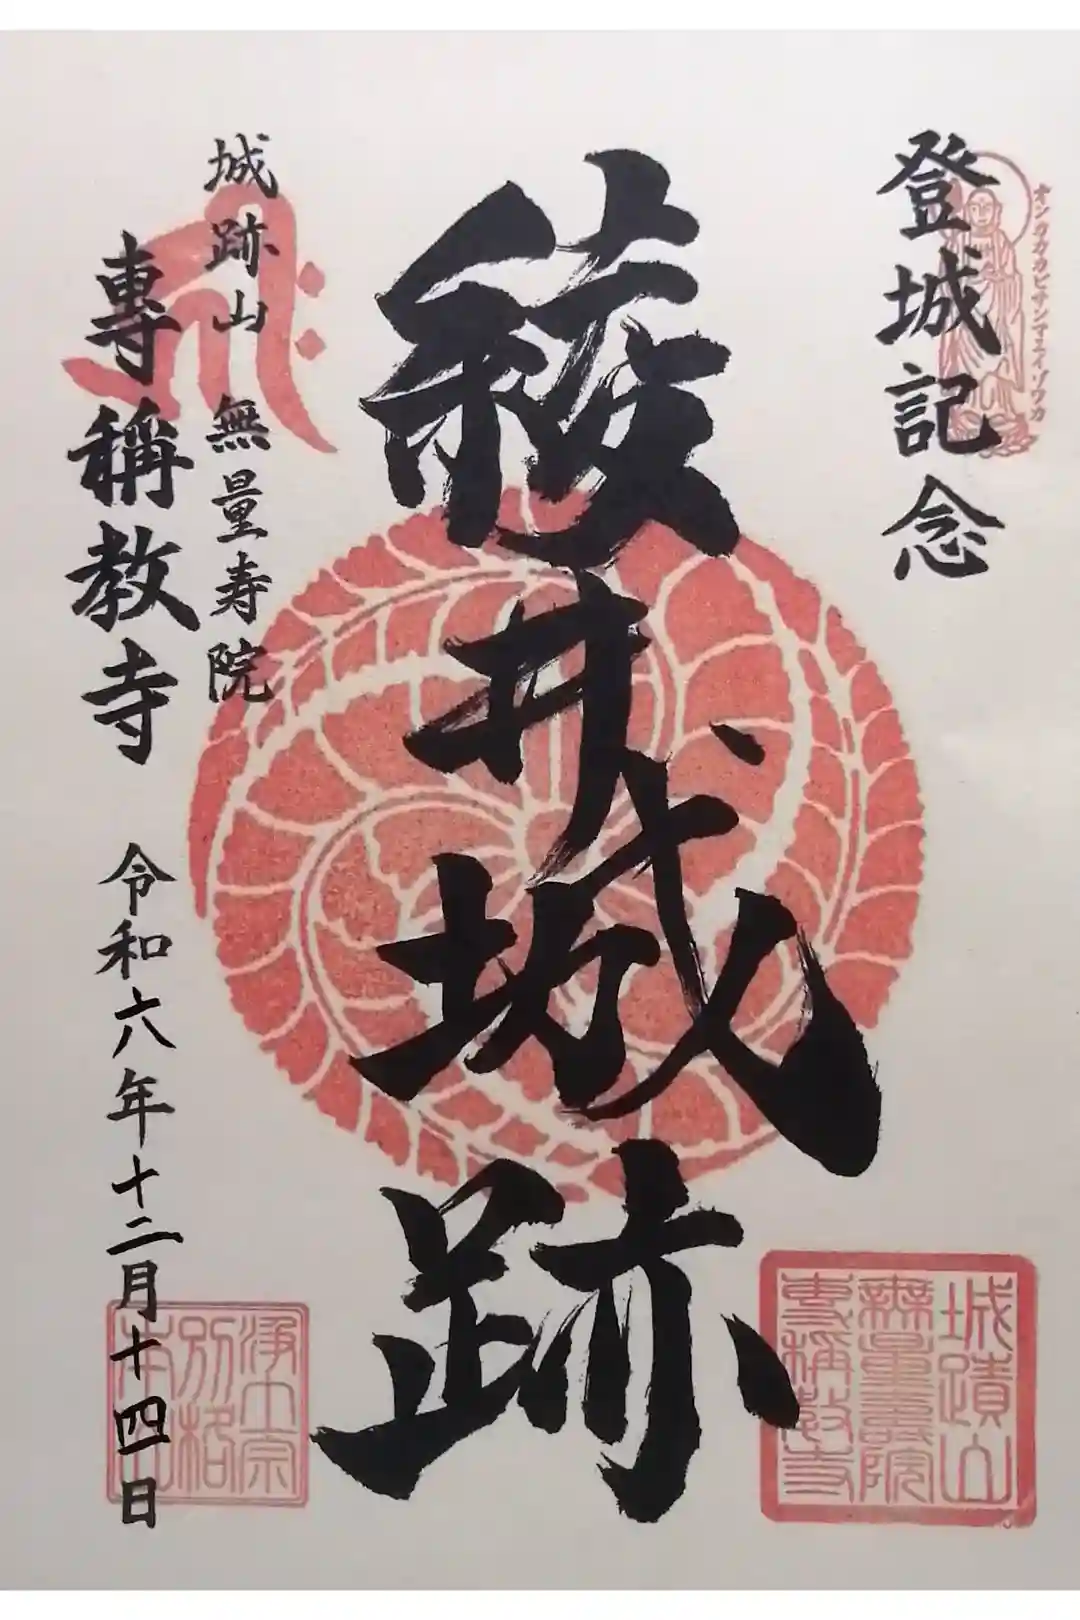 オンカカカビサンマエイソワカ
登城記念
綾井城跡
城跡山 無量寿院
專稱教寺
令和六年十二月十四日
城蹟山
無量壽院
專稱教寺
浄土宗
別格